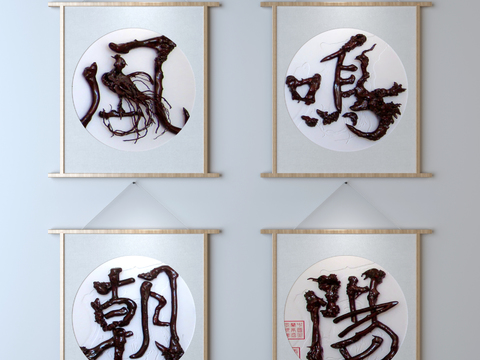 鳳鳴
朝陽